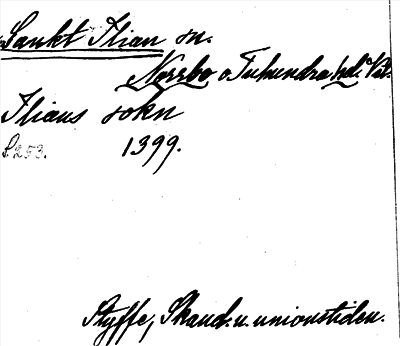 Sankt Ilian sn.
Norrbo o. Tuhundra hd. Väst.
Ilians sokn
S. 253. 1399.
Styffe, Skand. u. unionstiden.